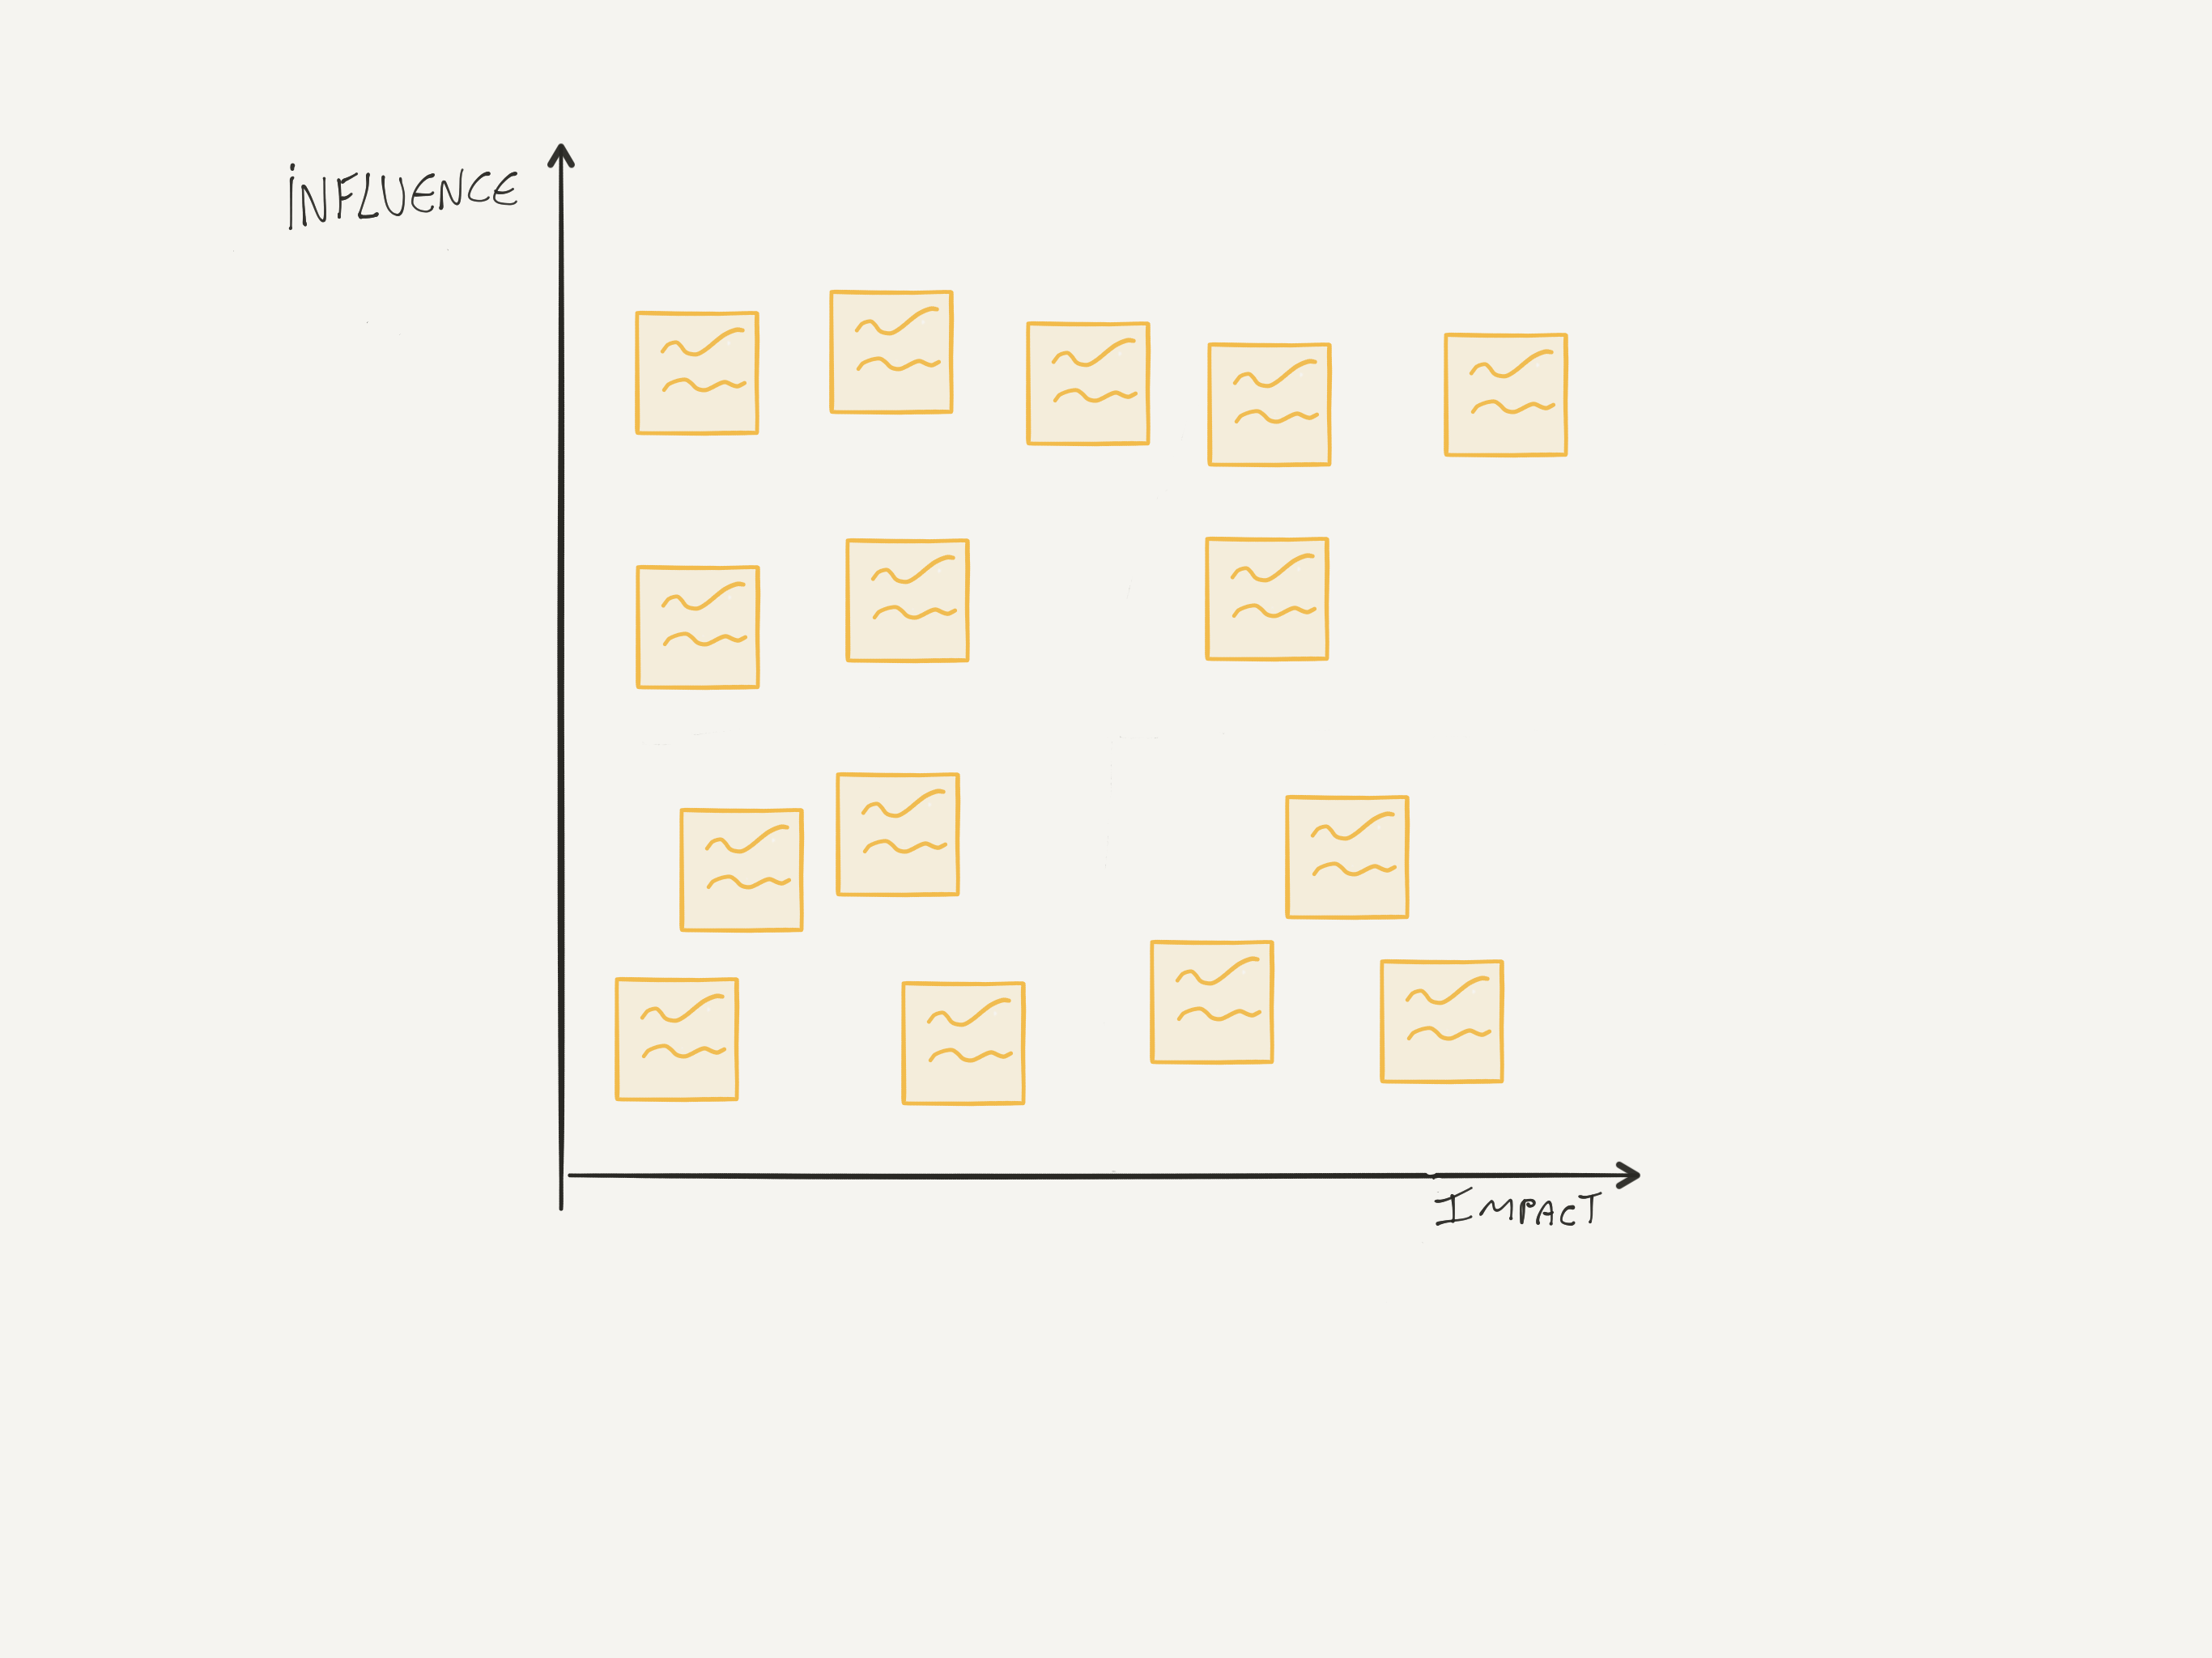 INFLUENCE
IMPACT